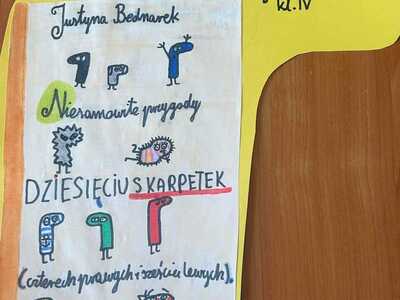 Justyna Bednarek
kl. IV
Niesamowite przygody
DZIESIĘCIU SKARPETEK
(czterech prawych i sześciu lewych).